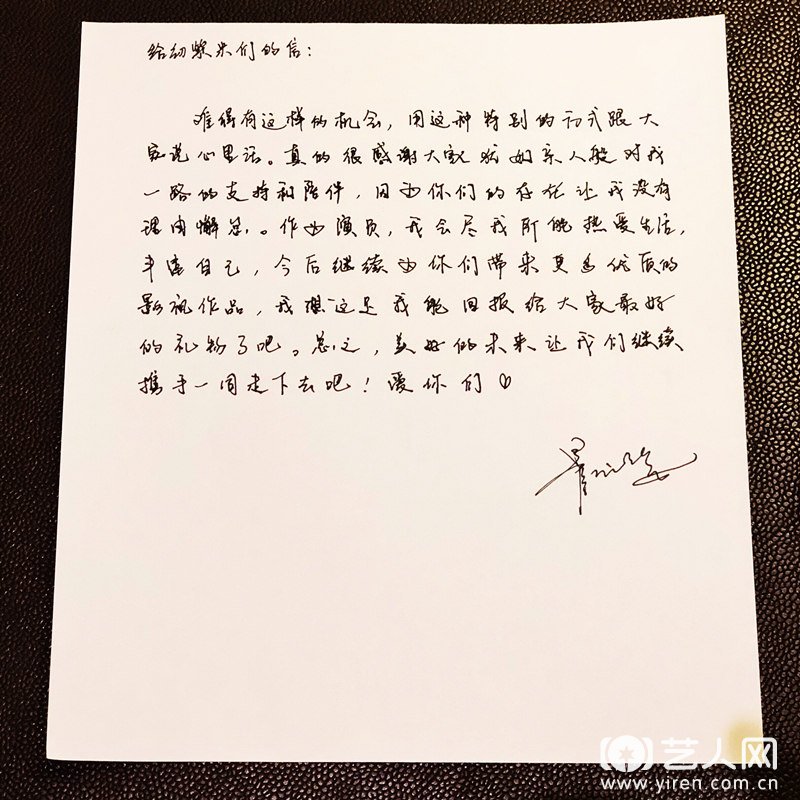 给柴米们的信：
难得有这样的机会，用这种特别的方式跟大
家说心里话。真的很感谢大家犹如亲人般对我
一路的支持和陪伴，因为你们的存在让我没有
理由懈怠。作为演员，我会尽我所能热爱生活，
丰富自己，今后继续为你们带来更多优质的
影视作品，我想这是我能回报给大家最好
的礼物了吧。总之，美好的未来让我们继续
携手一同走下去吧！爱你们♡
艺人网
www.yiren.com.cn